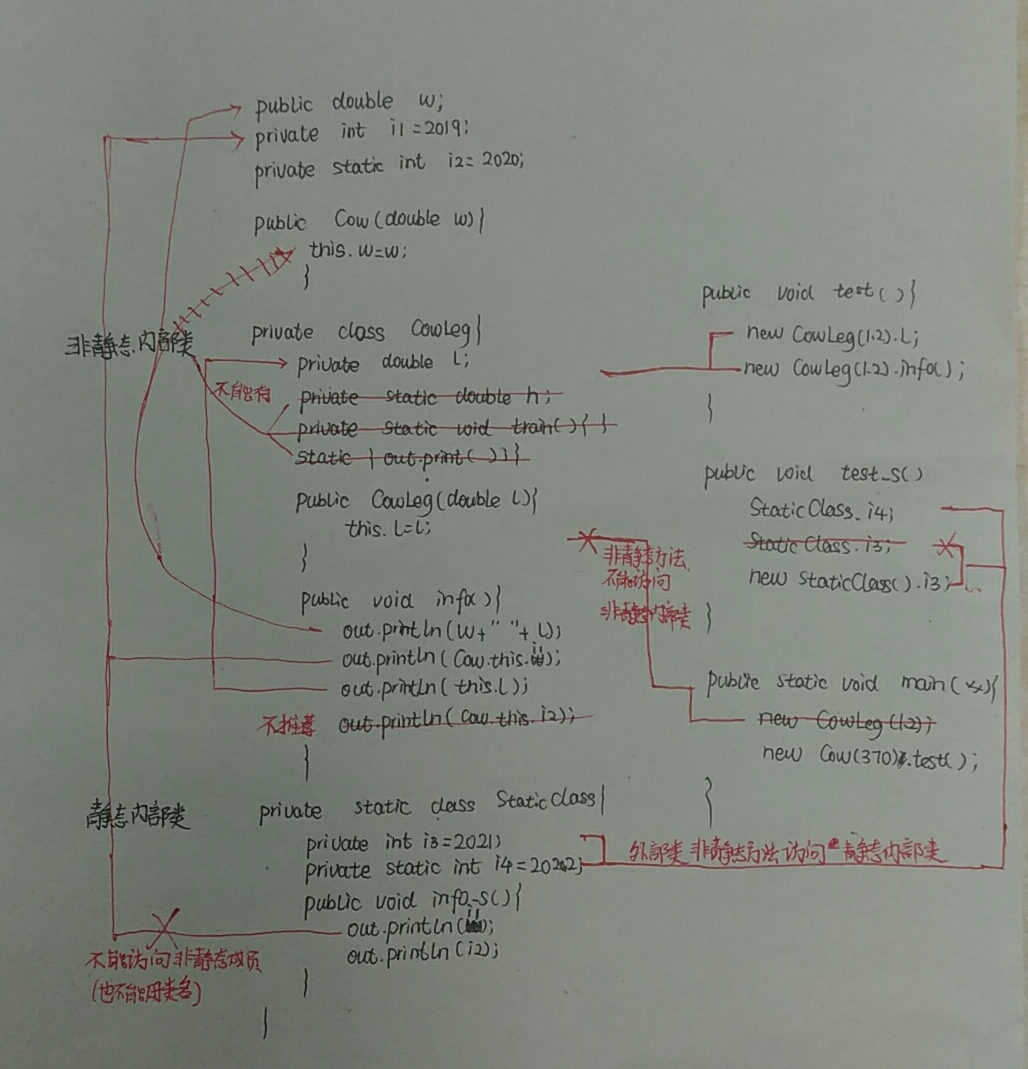 public double w;
private int i1=2019;
private static int i2=2020;
public Cow(double w){
this.w=w;
}
非静态内部类
private class CowLeg{
private double l;
不能有
private static double h;
private static void train(){ }
static { out.print( ) } }
public CowLeg(double l){
this.l=l;
}
public void info(){
out.println(w+" "+l);
out.println(Cow.this.i1);
out.println(this.l);
不推荐
out.println(Cow.this.i2);
}
静态内部类
private static class StaticClass{
private int i3=2021;
private static int i4=2022;
public void info_s(){
out.println(i1);
out.println(i2);
不能访问非静态成员
(也不能用类名)
}
}
public void test(){
new CowLeg(1.2).l;
new CowLeg(1.2).info();
}
public void test_s()
StaticClass.i4;
StaticClass.i3;
new StaticClass().i3;
}
非静态方法
不能访问
非静态内部类
public static void main( ){
new CowLeg(1.2);
new Cow(370).test();
}
外部类非静态方法访问静态内部类